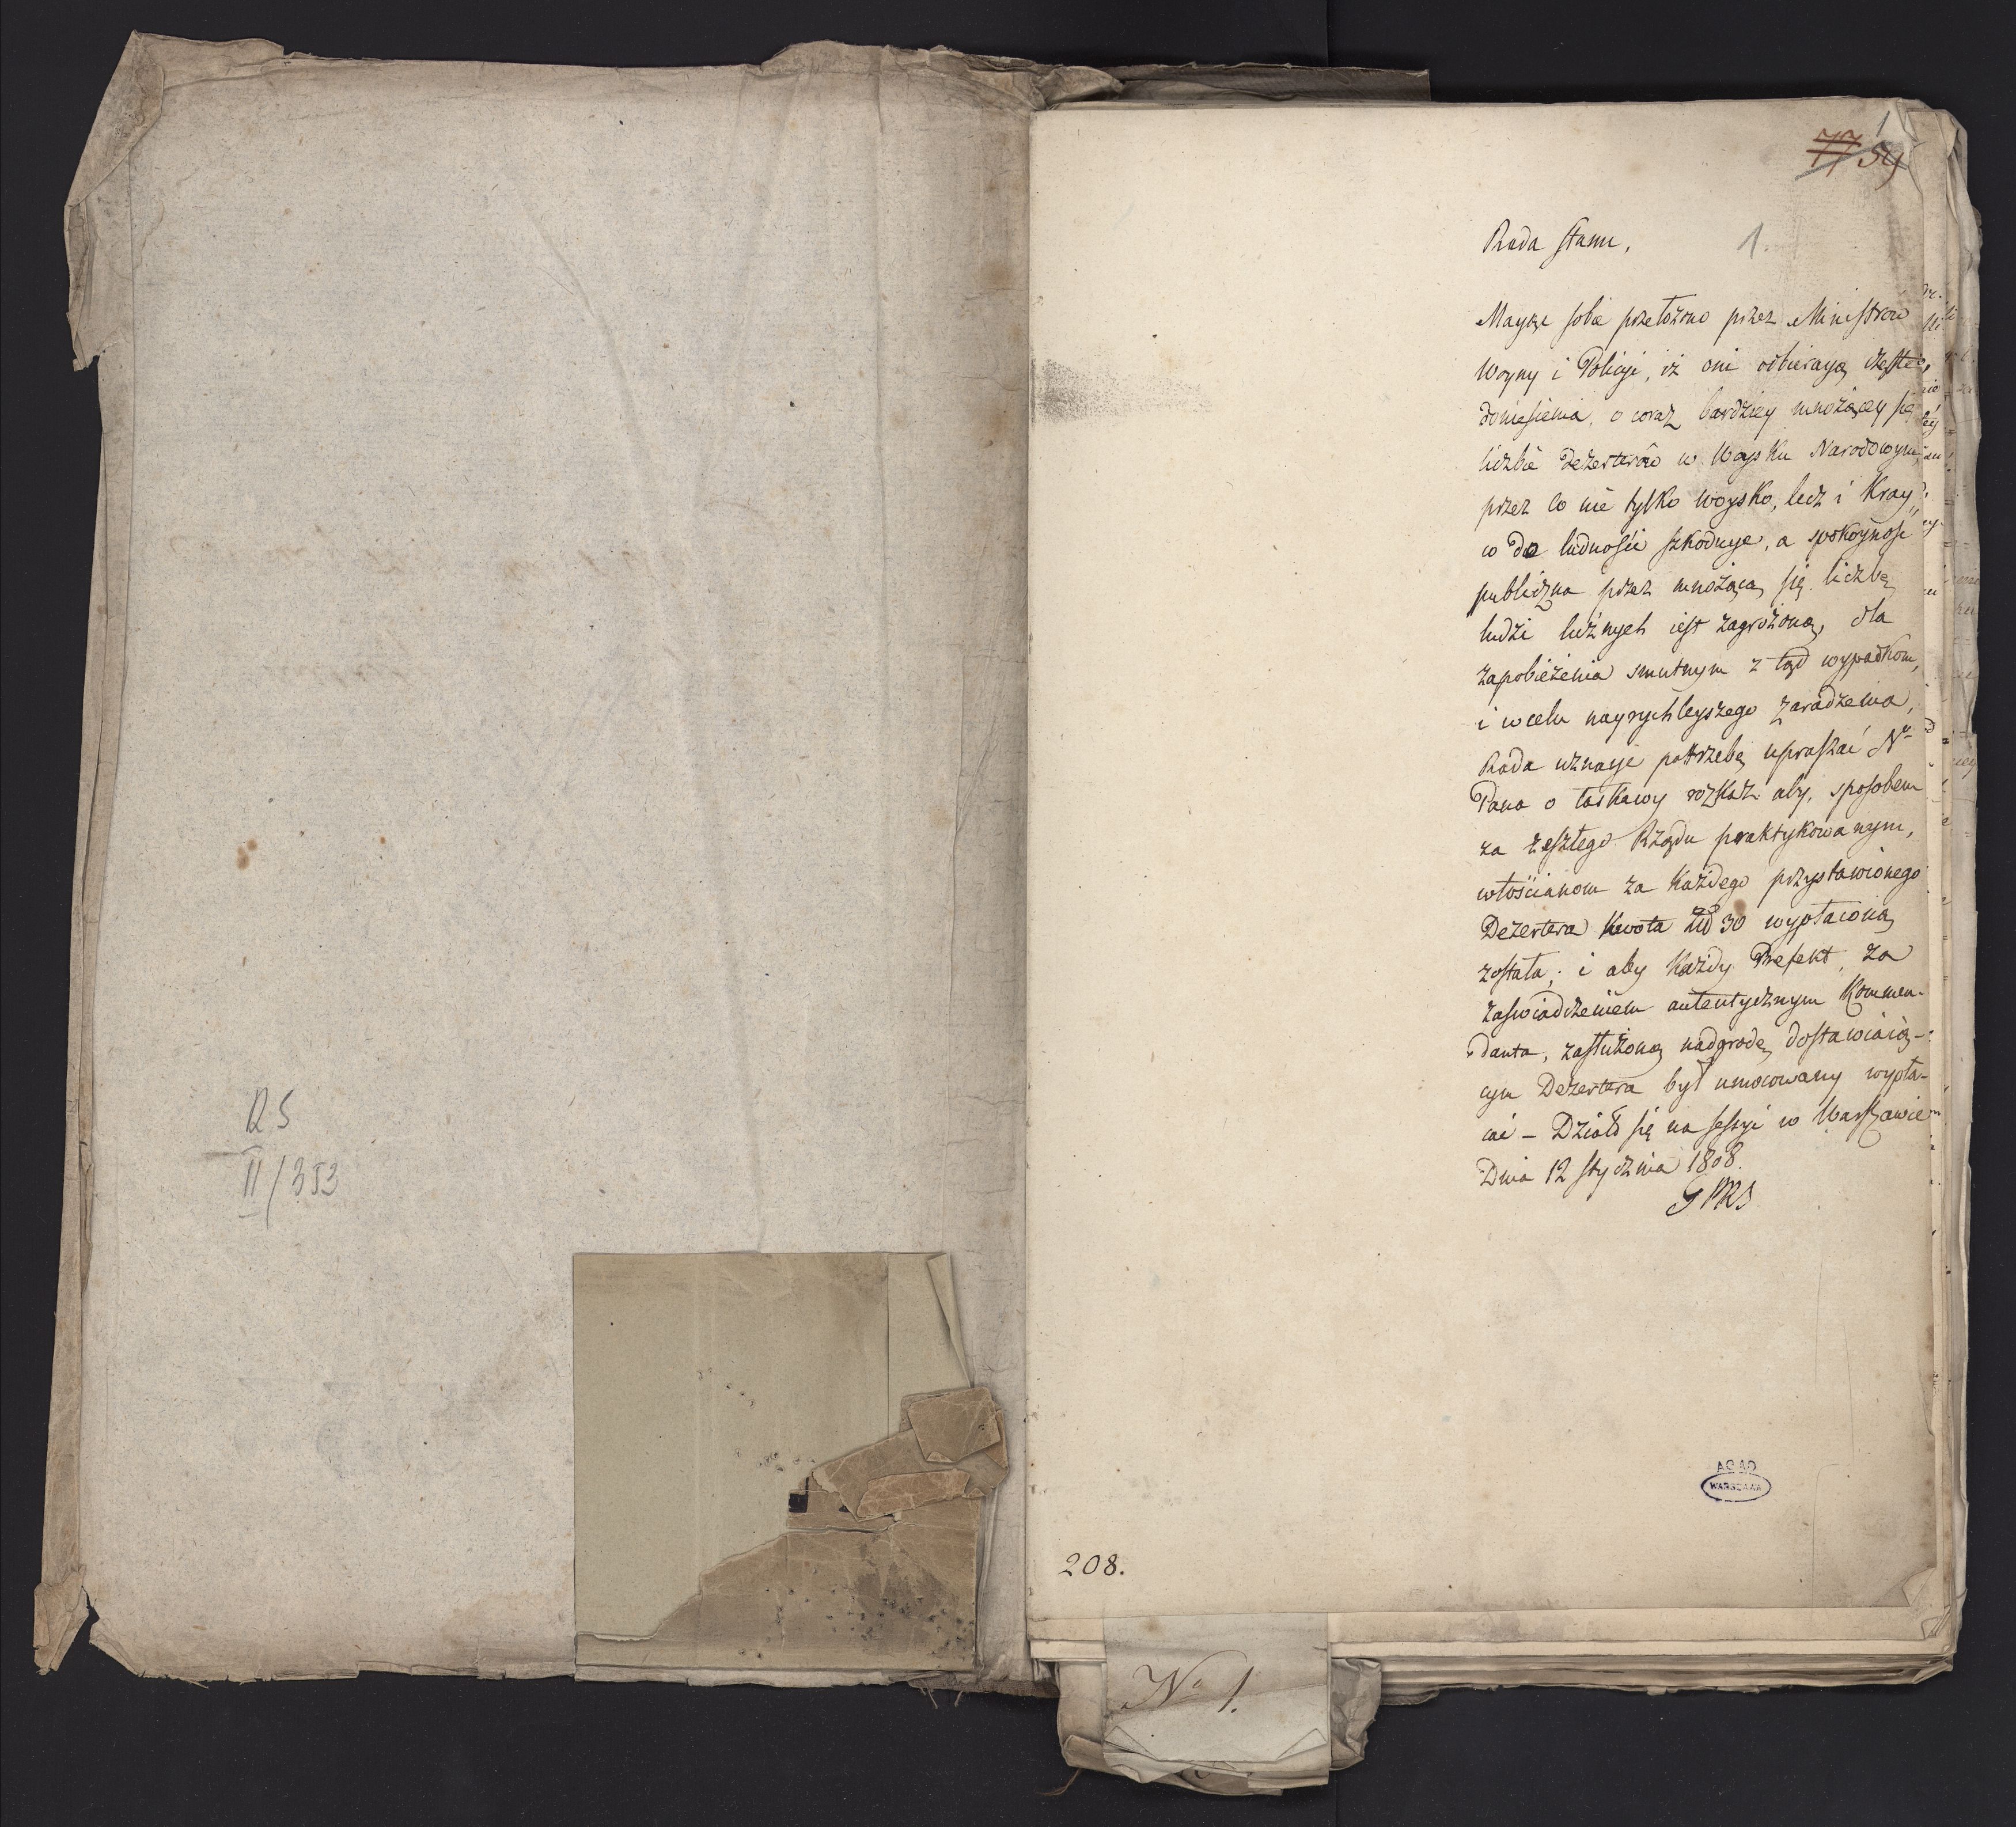 RS
II/353
1
77 54
1.
Rada Stanu,
Maýąc sobie przełożono przez Ministrow
Woyny i Policyi, iż oni odbieraýą częste
doniesienia, o coraz bardziey mnożącey się
liczbie Dezerterów w Woysku Narodowym,
przez co nie tylko woysko, lecz i Kray
co do ludności szkoduye, a spokoyność
publiczna przez mnożącą się liczbę
ludzi luźnych iest zagrożoną, dla
zapobieżenia smutnym z tąd wypadkom,
i w celu nayrychleyszego zaradzenia,
Rada uznaye potrzebę upraszać Nº
Pana o łaskawy rozkaz aby, sposobem
za zeszłego Rządu praktykowanym,
włościanom za każdego przystawionego
Dezertera kwota Złt 30 wypłacona
została; i aby każdy Prefekt, za
zaświadczeniem autentycznym Kommen-
danta, zasłużoną nadgrodę dostawiaią-
cym Dezertera był umocowany wypła-
cać – Działo się na sessyi w Warszawie
Dnia 12 Stycznia 1808.
AGAD
WARSZAWA
208.
Nº 1.